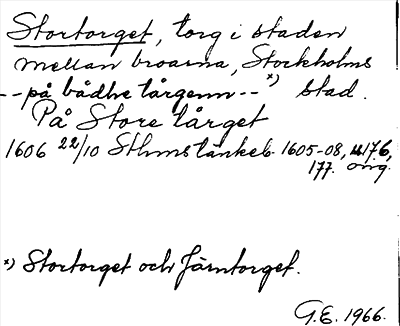 Stortorget, torg i staden
mellan broarna, Stockholms
--på bådhe tårgenn--ˣ⁾ stad.
På Store tårget
1606 22/10 Sthms tänkeb. 1605-08, s. 176,
177. orig.
ˣ⁾ Stortorget och Järntorget.
G.E. 1966.